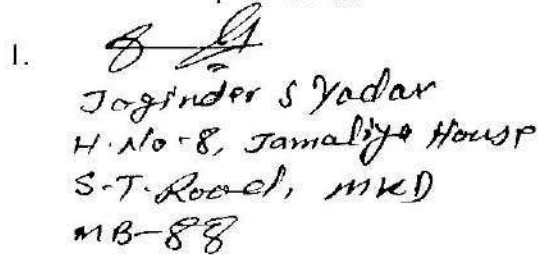 1.
Joginder S Yadav
H.No-8, Jamaliya House
S-T-Road, MKD
MB-88